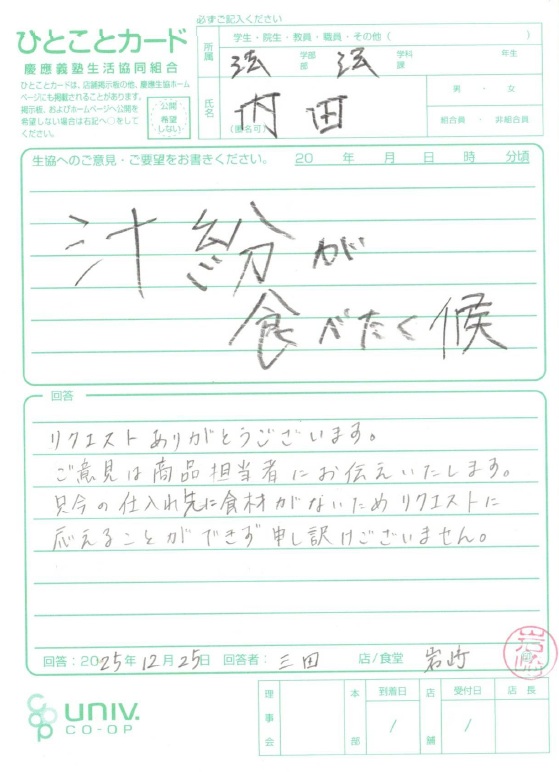 必ずご記入ください
ひとことカード
慶應義塾生活協同組合
ひとことカードは、店舗掲示板の他、慶應生協ホームページにも掲載されることがあります。
掲示板、およびホームページへ公開を
希望しない場合は右記へ○をして
ください。
公開
希望
しない
所属
学生・院生・教員・職員・その他（　　　）
法 学部 法 学科 年生
部 課
氏名
内田
(匿名可)
男・女
組合員・非組合員
生協へのご意見・ご要望をお書きください。 20 年 月 日 時 分頃
汁粉が
食べたく候
回答
リクエストありがとうございます。
ご意見は商品担当者にお伝えいたします。
只今の仕入れ先に食材がないためリクエストに
応えることができず申し訳けございません。
回答：2025年12月25日 回答者： 三田 店/食堂 岩崎
岩崎
univ.
CO-OP
理事会
本部
到着日
/
店舗
受付日
/
店長